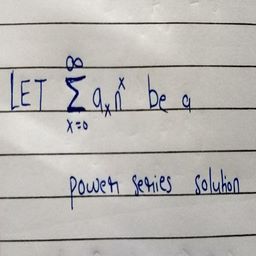 LET ∞∑x=0 aₓnˣ be a
power series solution